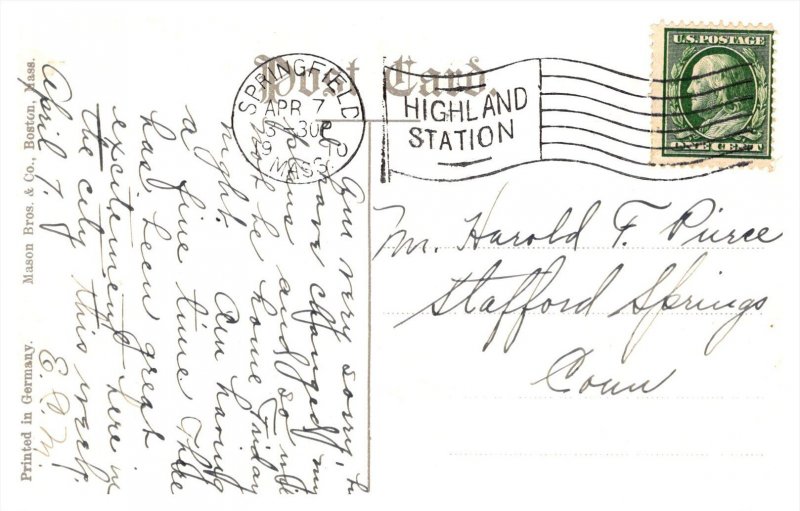 Post Card.
SPRINGFIELD
APR 7
3-30P
MASS.
HIGHLAND
STATION
U.S.POSTAGE
ONE CENT
Mr. Harold F. Pierce
Stafford Springs
Conn
Am very sorry,
have changed my
plans and so will
not be home Friday
night. Am having
a fine time. There
has been great
excitement here in
the city this week.
April 7.
E.C.M.
Mason Bros. & Co., Boston, Mass.
Printed in Germany.